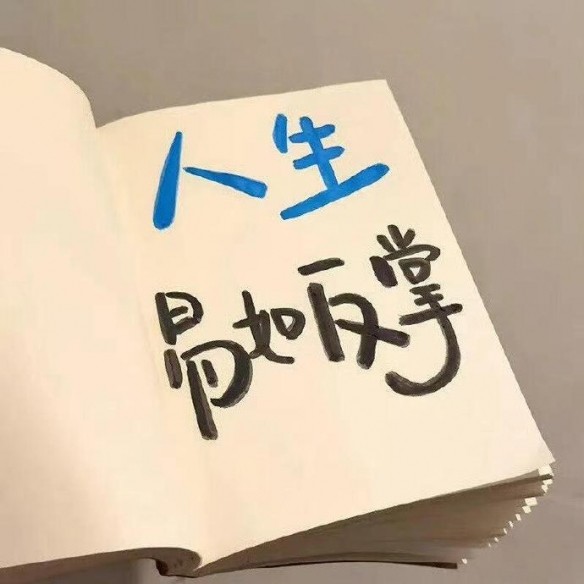 人生
易如反掌